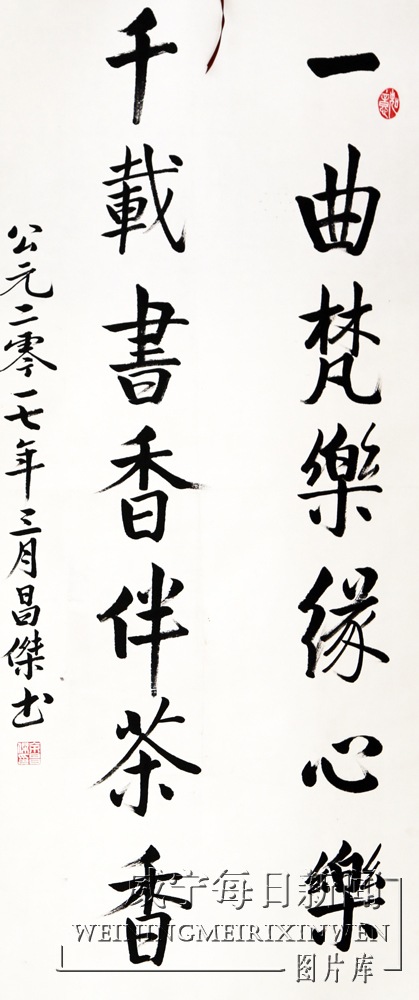 一曲梵樂緣心樂
千載書香伴茶香
公元二零一七年三月昌傑书
威宁每日新闻
WEININGMEIRIXINWEN
图片库